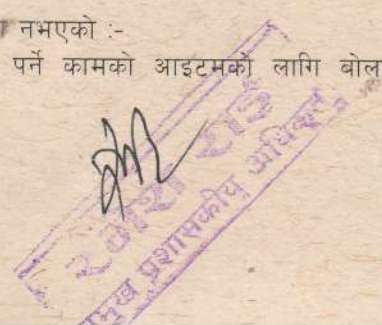 नभएको :-
पर्ने कामको आइटमको लागि बोल
रमेश राई
प्रमुख प्रशासकीय अधिकृत